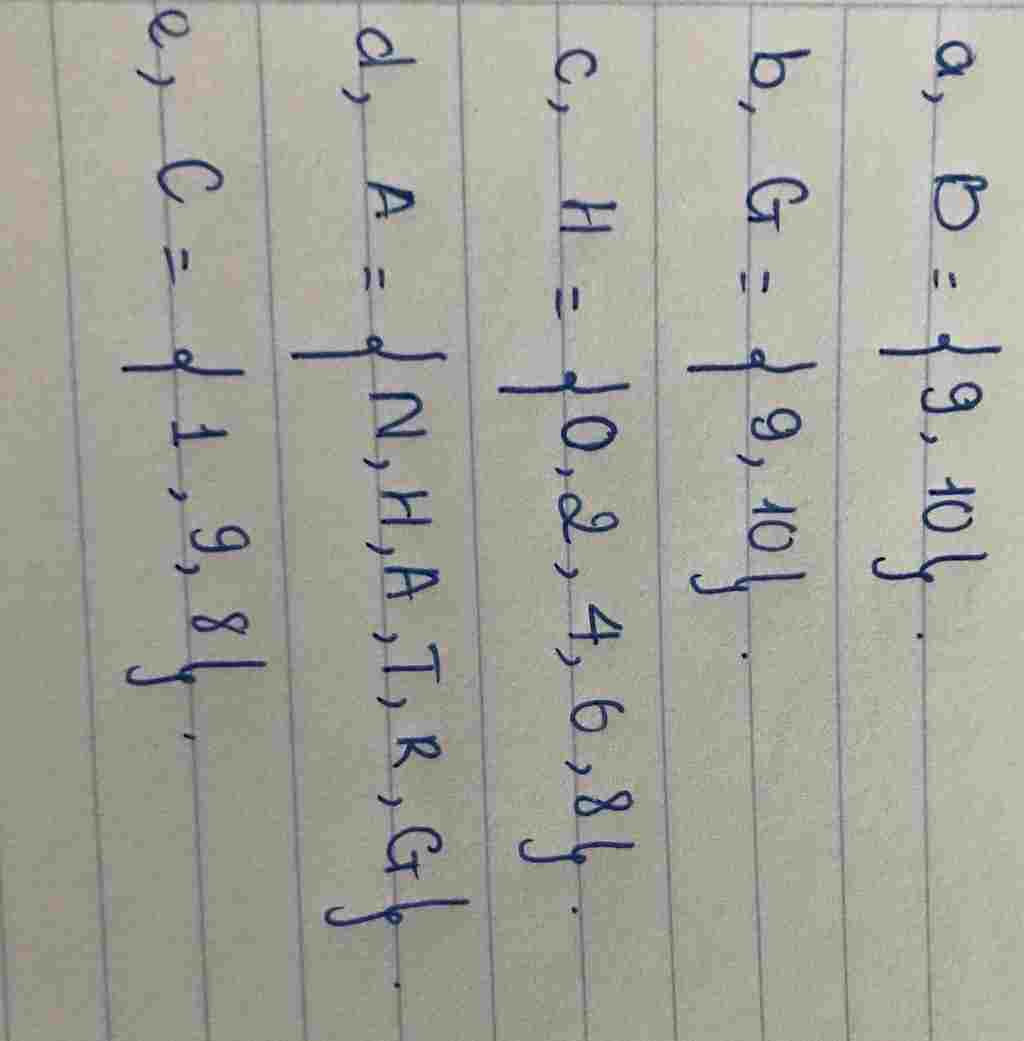 a, B = {9, 10}.
b, G = {9, 10}.
c, H = {0, 2, 4, 6, 8}.
d, A = {N, H, A, T, R, G}.
e, C = {1, 9, 8}.